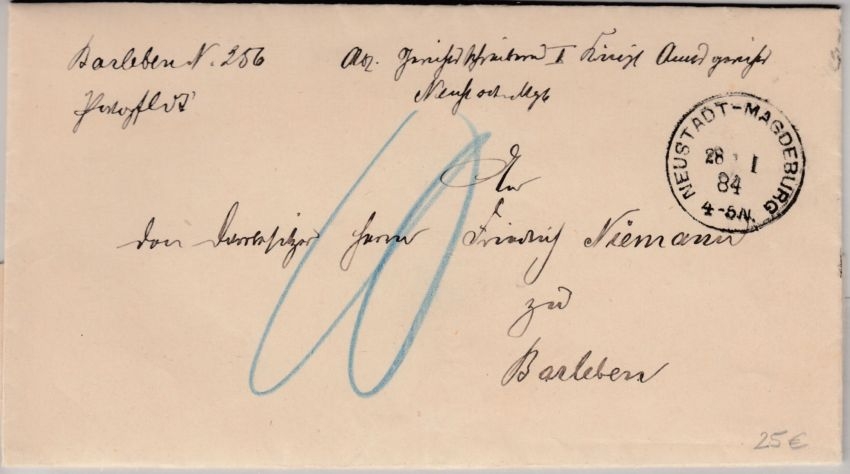 Barleben N. 256
Abs. Gerichtsschreiberei I Königl Amtsgericht
Neustadt-Mgb
NEUSTADT-MAGDEBURG
28 I
84
4-5N.
10
An
den Herrn Friedrich Niemann
zu
Barleben
25 €